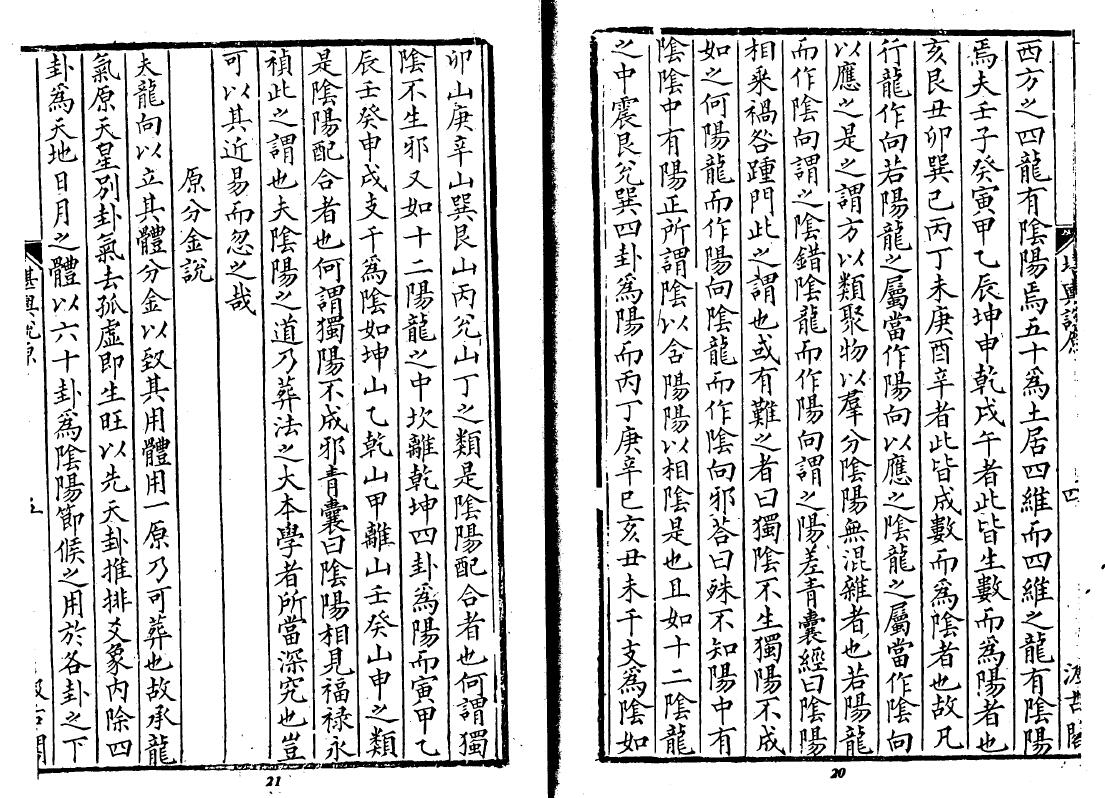 西方之四龍有陰陽焉五十爲土居四維而四維之龍有陰陽
焉夫壬子癸寅甲乙辰坤申乾戌午者此皆生數而爲陽者也
亥艮丑卯巽巳丙丁未庚酉辛者此皆成數而爲陰者也故凡
行龍作向若陽龍之屬當作陽向以應之陰龍之屬當作陰向
以應之是之謂方以類聚物以羣分陰陽無混雜者也若陽龍
而作陰向謂之陰錯陰龍而作陽向謂之陽差青囊經曰陰陽
相乘禍咎踵門此之謂也或有難之者曰獨陰不生獨陽不成
如之何陽龍而作陽向陰龍而作陰向邪荅曰殊不知陽中有
陰陰中有陽正所謂陰以含陽陽以相陰是也且如十二陰龍
之中震艮兌巽四卦爲陽而丙丁庚辛巳亥丑未干支爲陰如
四
20
卯山庚辛山巽艮山丙兌山丁之類是陰陽配合者也何謂獨
陰不生邪又如十二陽龍之中坎離乾坤四卦爲陽而寅甲乙
辰壬癸申戌支干爲陰如坤山乙乾山甲離山壬癸山申之類
是陰陽配合者也何謂獨陽不成邪青囊曰陰陽相見福禄永
禎此之謂也夫陰陽之道乃葬法之大本學者所當深究也豈
可以其近易而忽之哉
原分金說
夫龍向以立其體分金以致其用體用一原乃可葬也故承龍
氣原天星別卦氣去孤虛即生旺以先天卦推排爻象内除四
卦爲天地日月之體以六十卦爲陰陽節候之用於各卦之下
五
21